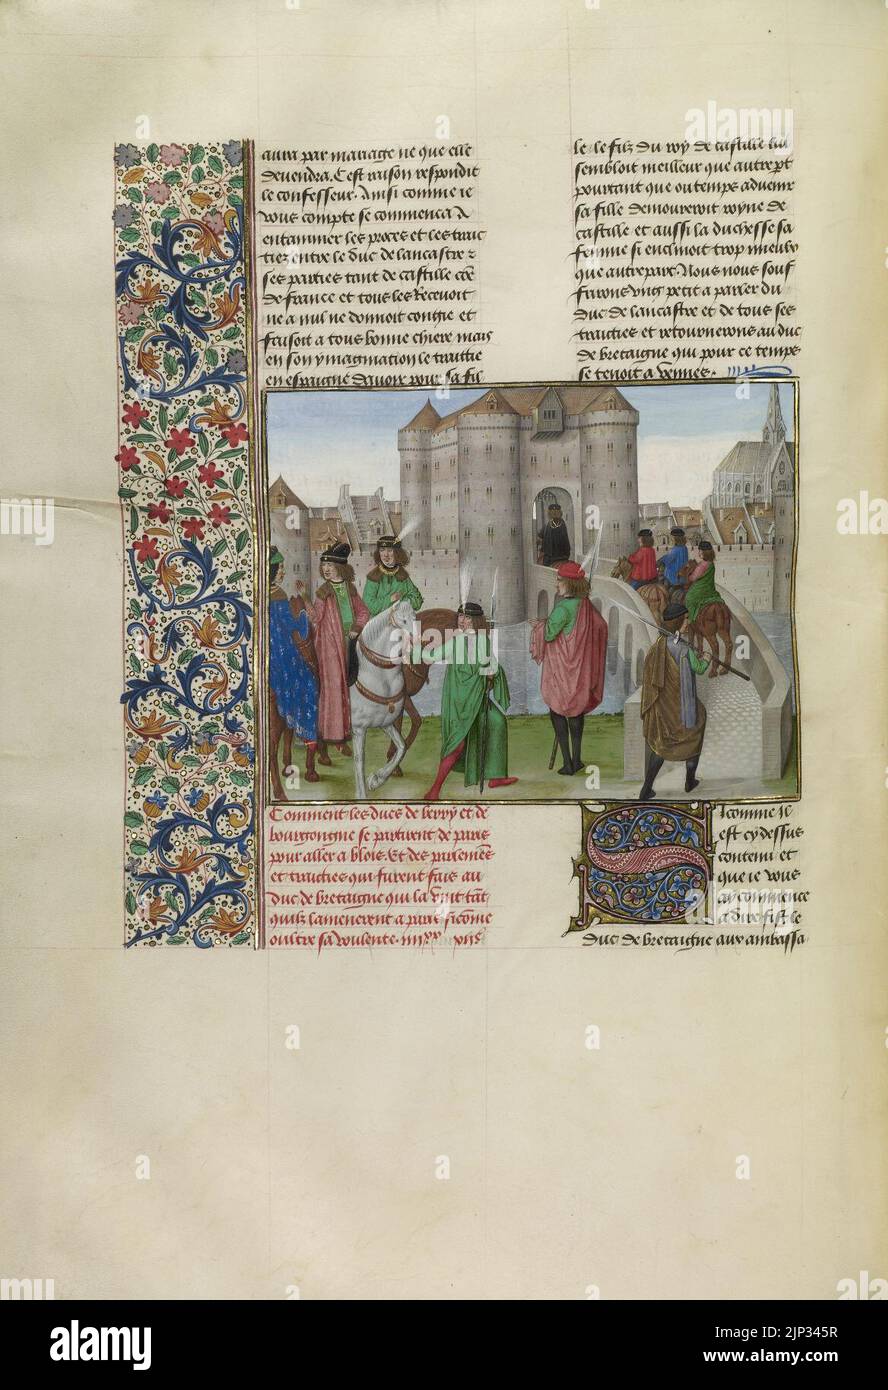 aura par mariage ne que elle
devendra. Cest raison respondit
le confesseur. Ainsi comme ie
vous compte se commenca a
entammer les proces et les traic
tiez entre le duc de lancastre z
ses parties tant de castille cōe
de france et tous les recevoit
ne a nul ne donnoit congie et
faisoit a tous bonne chiere mais
en son ymagination le traittie
en espaigne devoit pour sa fil
le. le filz du roy de castille lui
sembloit meilleur que autre pt
pourtant que ou temps advenir
sa fille demoureroit royne de
castille et aussi la duchesse sa
femme si enclinoit trop mieulx
que autre part. Nous nous souf
ferons ung petit a parler du
duc de lancastre et de tous ses
traicties et retournerons au duc
de bretaigne qui pour ce temps
se tenoit a vennes.
Comment les ducs de berry et de
bourgongne se partirent de paris
pour aller a blois. Et des parlemens
et traicties qui furent fais au
duc de bretaigne qui la vint tāt
quilz lamenerent a paris sicōme
oultre sa voulente. iiiixx xviie
Sicomme il
est cy dessus
contenu et
que ie vous
ay commence
a dire fist le
duc de bretaigne aux ambassa
alamy
Image ID: 2JP345R
www.alamy.com